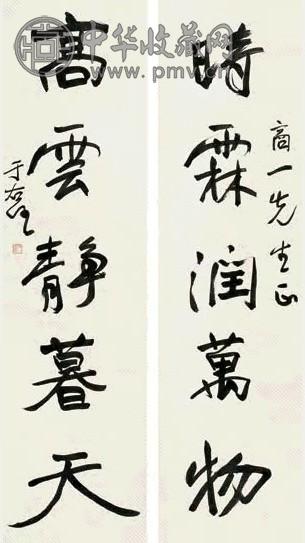 中华收藏网
www.pmv.cn
時霖潤萬物
商一先生正
高雲静暮天
于右任